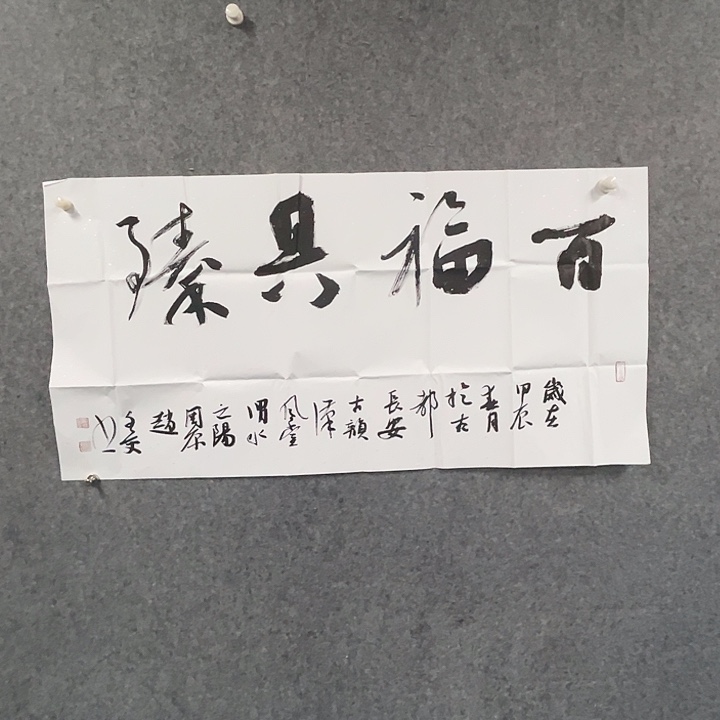 百福具臻
歲在
甲辰
春月
於古
都
長安
古韻
漢
風堂
渭水
之陽
周原
趙